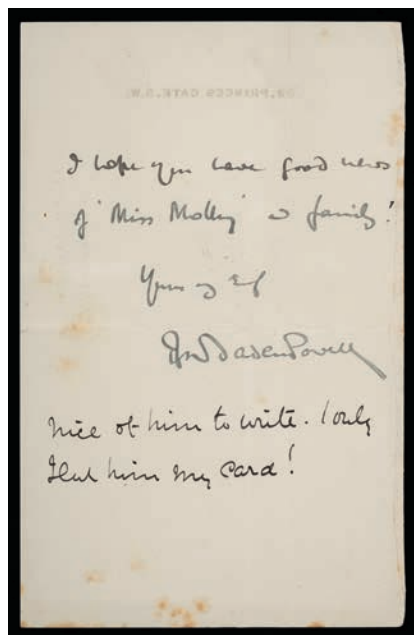 PRINCES GATE, S.W.
I hope you have good news
of "Miss Molly" & family!
Yours
BadenPowell
Nice of him to write. I only
Sent him my Card!